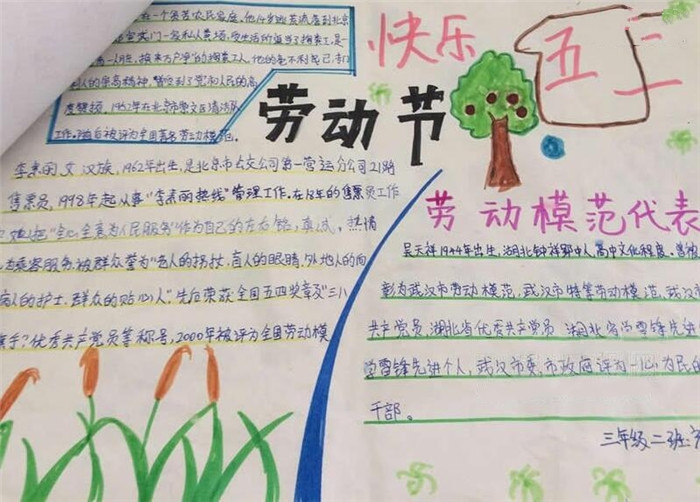 在一个贫苦农民家庭。他14岁逃荒流落到北京
门一家私人粪场,受生活所逼当了掏粪工,是一
人脏,换来万户净"的掏粪工人,他的毫不利己,专门
利人的崇高精神,曾受到了党和人民的高
度赞颂。1952年在北京市崇文区清洁队
工作。先后被评为全国著名劳动模范。
快乐
五一
劳动节
李素丽 女 汉族,1962年出生,是北京市公交公司第一营运分公司21路
售票员,1998年起从事"李素丽热线"管理工作。在18年的售票员工作
中她把"全心全意为人民服务"作为自己的座右铭,真诚,热情
为乘客服务被群众誉为"老人的拐杖,盲人的眼睛,外地人的向
病人的护士,群众的贴心人"。先后荣获全国五四奖章及"三八
旗手"优秀共产党员等称号,2000年被评为全国劳动模
劳动模范代表
吴天祥1944年出生,湖北钟祥郢中人,高中文化程度。曾被
彰为武汉市劳动模范,武汉市特等劳动模范,武汉市
共产党员,湖北省优秀共产党员,湖北省学雷锋先进
学雷锋先进个人,武汉市委、市政府评为一心为民的
干部。
三年级二班: